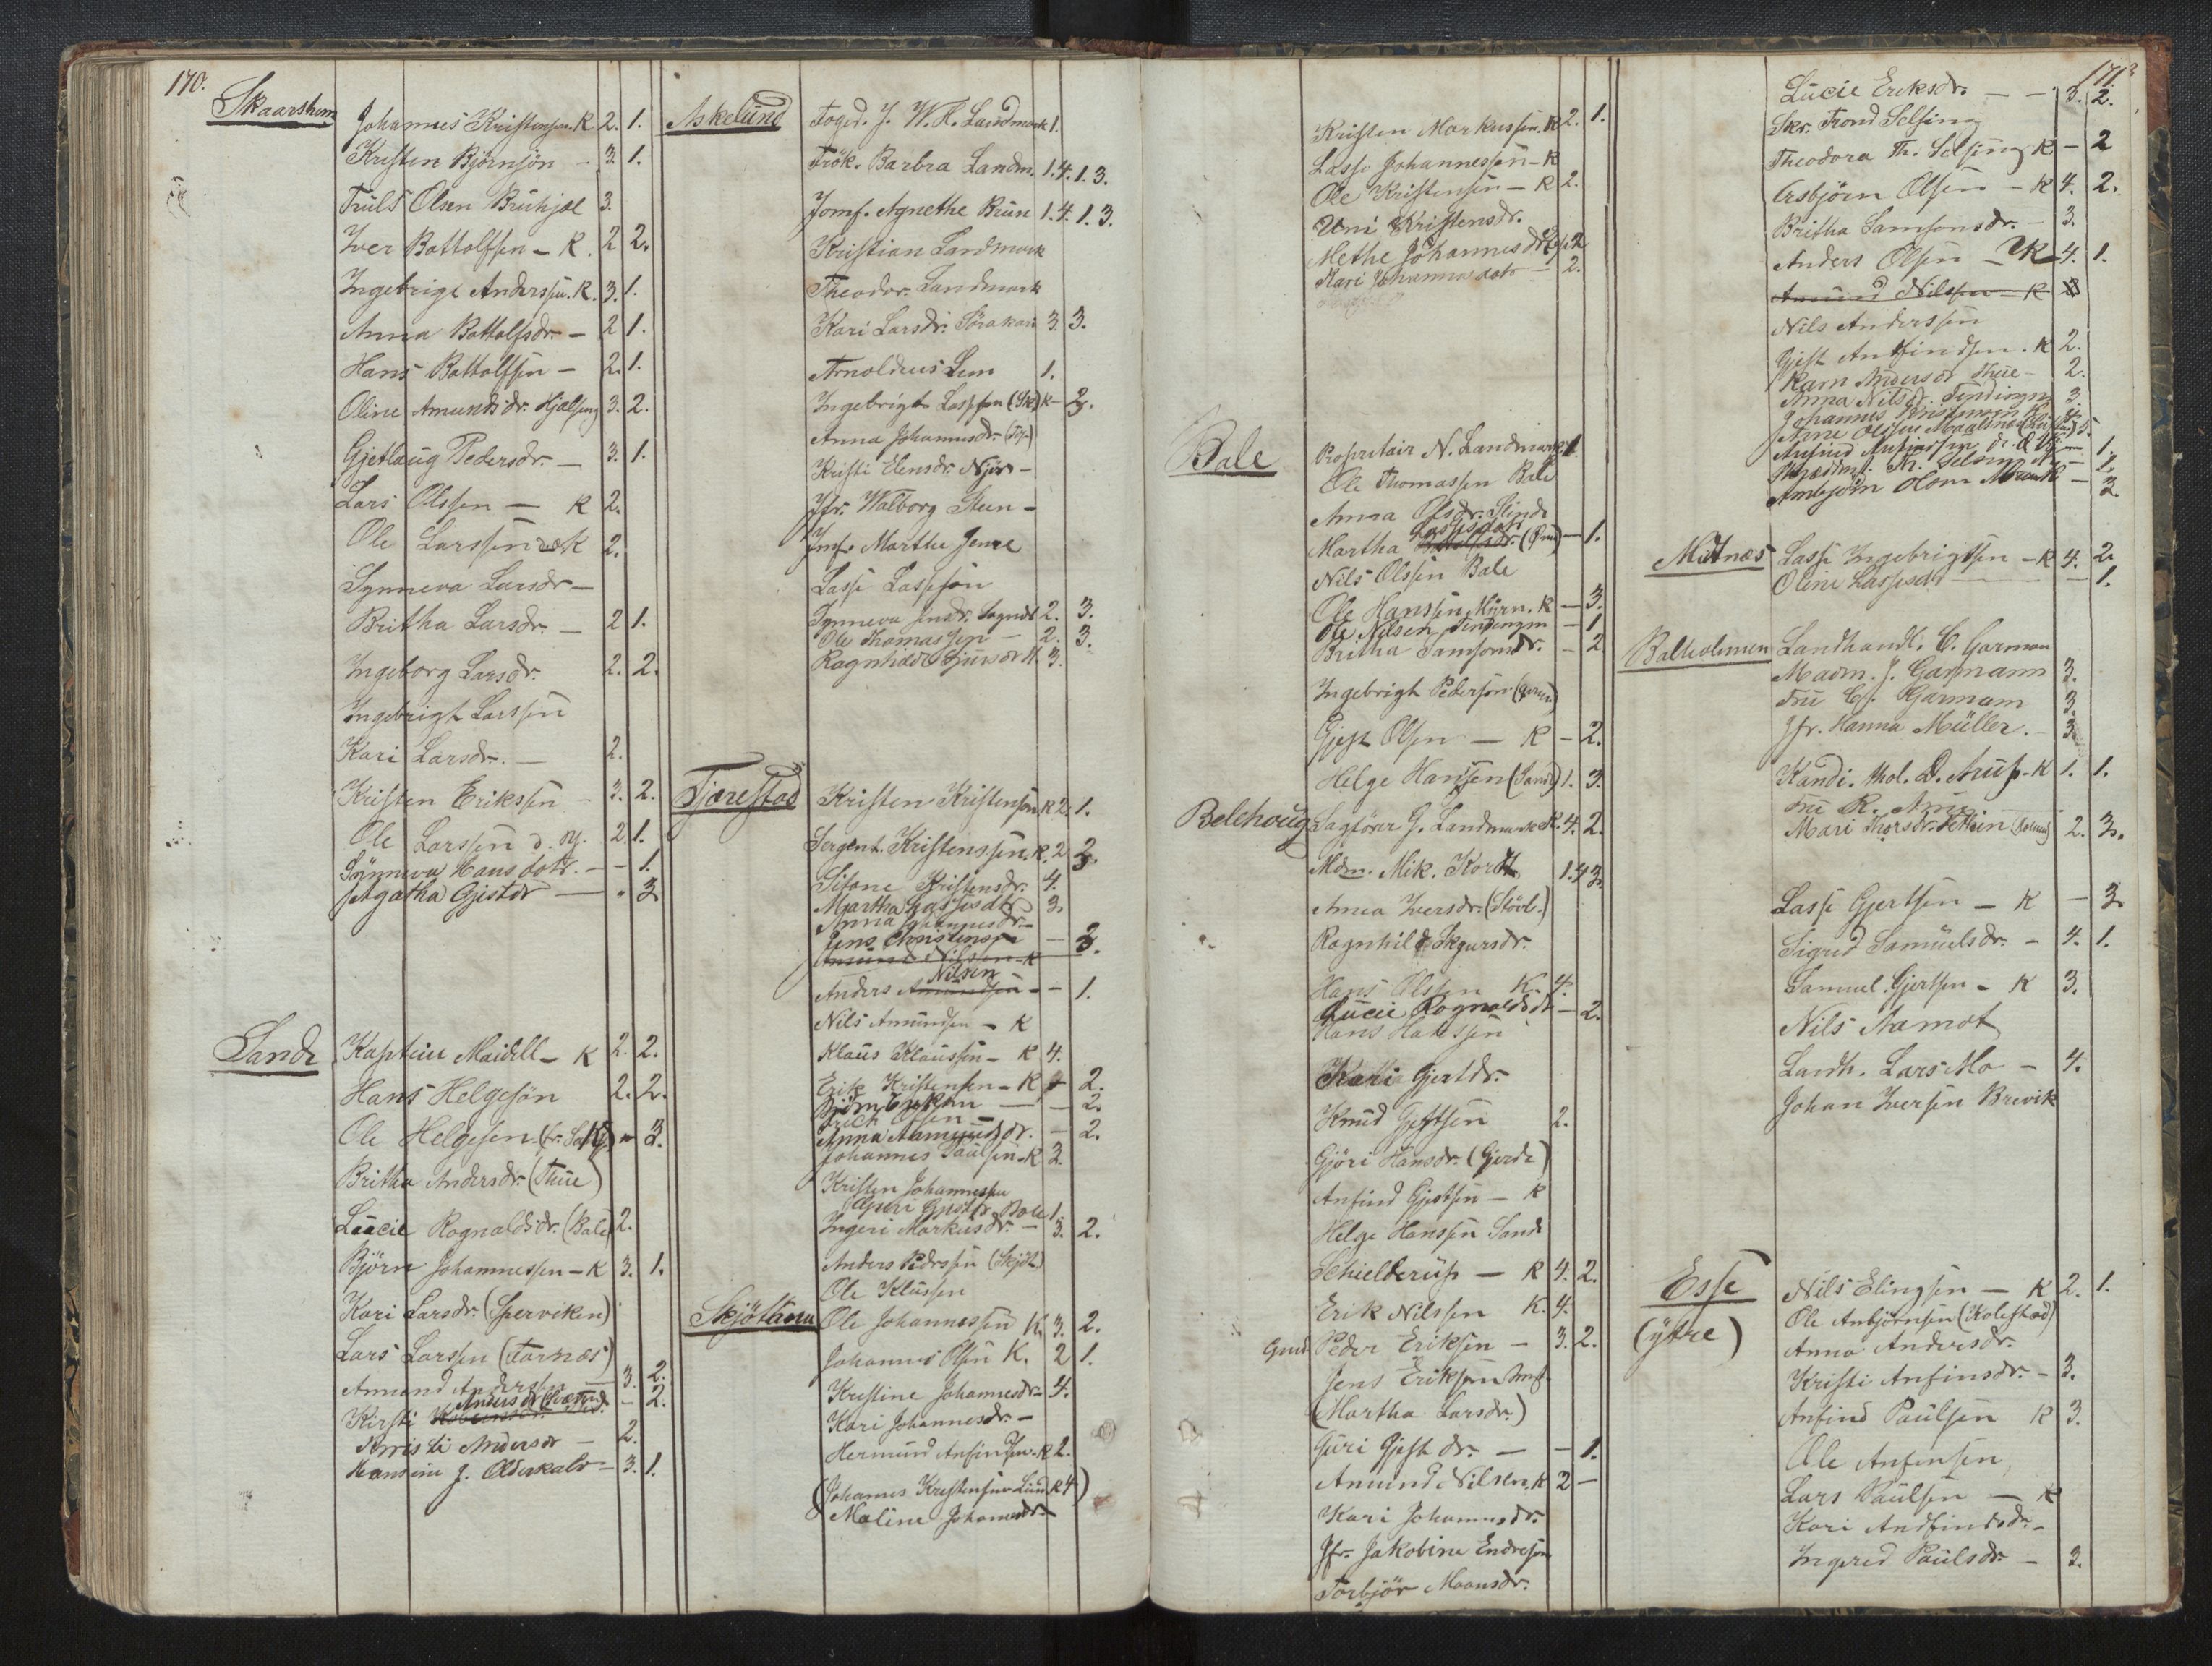 170.
Skaarshem
Johannes Kristensen. K 2. 1.
Kristen Björnsön - 3. 1.
Truls Olsen Bruhjæl 3.
Iver Bottolfsen - K. 2 2.
Ingebrigt Anderssen. K. 3. 1.
Anna Bottolfsdr. - 2 1.
Hans Bottolfsen - 2. 1.
Oline Amundsdr. Hjælseng 3. 2.
Gjetlaug Pedersdr. - 3. 1.
Lars Olssen - K 2.
Ole Larssen K 2.
Synneva Larsdr -
Britha Larsdr. - 2 1.
Ingeborg Larsdr. 2. 2.
Ingebrigt Larssen
Kari Larsdr. - 2.
Kristen Erikssen - 3. 2.
Ole Larssen d. y. 2. 1.
Synneva Hansdotr. - - 1.
Agatha Gjestdr - 3
Sande
Kaptein Maidell - K 2. 2.
Hans Helgesön 2. 2.
Ole Helgesen 3.
Britha Andersdr. (Thue)
Lucie Rognaldsdr. (Bale) 2.
Björn Johannessen - K 3. 1.
Kari Larsdr. (Sperviken)
Lars Larssen (Tarnæs)
Amund Anderssen - 3. 2.
Kirsti Andersdr - 2.
Kristi Andersdr - 2.
Hansine J. Olderskalv - 3. 1.
Askelund
Foged. J. W. K. Landmark 1.
Frök. Barbra Landm. 1. 4. 1. 3.
Jomf. Agnethe Brun 1. 4. 1. 3.
Kristian Landmark
Theodor. Landmark
Kari Larsdr. Sörakari 3. 3.
Arnoldius Lem 1.
Ingebrigt Lassesen (Sk) K - 3.
Anna Johannesdr.
Kristi Elensdr. Njös -
Jfr. Walborg Steen -
Jmf. Marthe Jenre
Lasse Lassesön
Synneva Jensdr. Sogndal 2. 3.
Ole Thomassen - 2. 3.
Ragnhild Sjursdr 3.
Tjærestad
Kristen Kristensen K 2. 1.
Sergent. Kristenssen. K. 2 3.
Sitone Kristensdr. 4.
Martha Lassesdtr 3
Anna Johannesdr. -
Jens Christensen - 3.
Amund Nilssen - K
Anders Amundsen Nilsen - - 1.
Nils Amundsen - K
Klaus Klaussen - K 4.
Erik Kristensen - K 2.
Björn Eriksen - - 2.
Erich Olsen -
Anna Aamundsdr. - 2.
Johannes Paulsen - K 3.
Kristen Johannessen
Guri Gjestdr. Bale 1.
Ingeri Markusdr. - 3. 2.
Anders Pedrssen (Skjöt.)
Ole Klussen
Skjötann
Ole Johannessen K. 3. 2.
Johannes Olsen K. 2 1.
Kristine Johannesdr - 4.
Kari Johannesdr. -
Hermund Anfindsen. K 2.
(Johannes Kristensen Lund K 4)
Maline Johannesdr -
Kristen Markussen. K 2. 1.
Lasse Johannessen - K
Ole Kristensen - K 2.
Uni Kristensdr.
Methe Johannesdr. 2
Kari Johannesdotr - 2.
Bale
Proprietair N. Landmark 1
Ole Thomassen Bale
Anna Olsdr. Slinde
Martha Lassesdotr - 1.
Nils Olssen Bale
Ole Hanssen Myrn. K - 3.
Ole Nilsen Tendingen - 1
Britha Samsonsdr. - 2
Ingebrigt Pedersen
Gjest Olsen - K - 2.
Helge Hanssen (Sande) 1. 3.
Belehoug
Sagförer G. Landmark K. 4. 2.
Mdm. Mik. Kordt 1. 4 3.
Anna Iversdr. (Stövl.)
Ragnhild Skjursdr.
Hans Olssen K. 4.
Lucie Rognaldsdr - 2.
Hans Hanssen
Kari Gjertdr.
Knud Gjestsen 2.
Gjöri Hansdr. (Gjerde)
Anfind Gjestsen - K
Helge Hansen Sande
Schielderup - K 4. 2.
Erik Nilssen K. 4.
Gmd. Peder Eriksen - 3. 2.
Jens Eriksen
(Martha Larsdr.)
Guri Gjestdr. - - 1.
Amund Nilsen K 2 -
Kari Johannesdr.
Jfr. Jakobine Endresen
Torbjör Monsdr.
171.
Lucie Eriksdr. - - 3. 2.
Skr. Trond Selsing
Theodora Th. Selsing K - 2
Asbjörn Olsen - K 4. 2.
Britha Samsonsdr. - 3.
Anders Olsen - K 4. 1.
Amund Nilssen - K
Nils Anderssen
Gjest Andfindsen. K 2.
Karn Andersdr Thue - 2.
Anna Nilsdr. Tendingen 3.
Johannes Kristensen
Arne Olssen
Anfind Anfindsen - 1.
Selsing - 1.
Ambjörn Olsen - 3
Mutnæs
Lasse Ingebrigtsen - K 4. 2.
Oline Lassesdr - 1.
Balholmen
Landhandl. C. Garman
Madm. J. Garmann 3.
Fru C. Garmann 3.
Jfr. Hanna Müller. - 3.
Kandi. thol. D. Arup - K 1. 1.
Fru R. Arup
Mari Thorsdr. 2. 3.
Lasse Gjertsen - K - 3
Sigrid Samuelsdr. - 4. 1.
Samuel Gjertsen - K 3.
Nils Aamot
Landh. Lars Mo - 4.
Johan Iversen Brevik
Esse
(ytre)
Nils Elingsen - K 2. 1.
Ole Anbjörnsen (Kolestad)
Anna Andersdr.
Kristi Anfinsdr. - 3.
Anfind Paulsen K 3.
Ole Anfinsen
Lars Paulsen - K
Kari Andfindsdr. -
Ingerid Paulsdr. - 3.